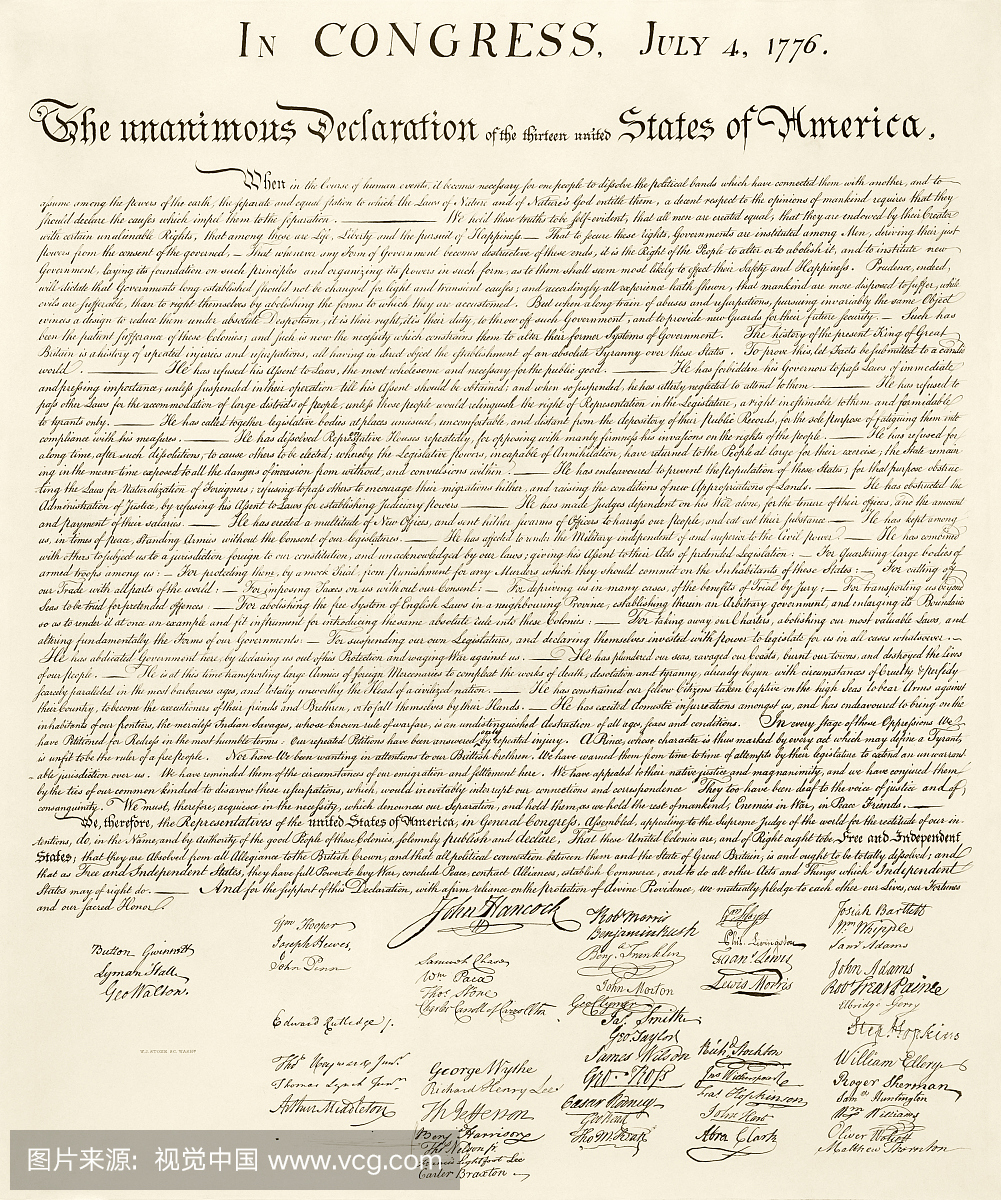 IN CONGRESS, JULY 4, 1776.
The unanimous Declaration of the thirteen united States of America,
When in the Course of human events, it becomes necessary for one people to dissolve the political bands which have connected them with another, and to
assume among the powers of the earth, the separate and equal station to which the Laws of Nature and of Nature's God entitle them, a decent respect to the opinions of mankind requires that they
should declare the causes which impel them to the separation. ——— We hold these truths to be self-evident, that all men are created equal, that they are endowed by their Creator
with certain unalienable Rights, that among these are Life, Liberty and the pursuit of Happiness.— That to secure these rights, Governments are instituted among Men, deriving their just
powers from the consent of the governed, — That whenever any Form of Government becomes destructive of these ends, it is the Right of the People to alter or to abolish it, and to institute new
Government, laying its foundation on such principles and organizing its powers in such form, as to them shall seem most likely to effect their Safety and Happiness. Prudence, indeed,
will dictate that Governments long established should not be changed for light and transient causes; and accordingly all experience hath shewn, that mankind are more disposed to suffer, while
evils are sufferable, than to right themselves by abolishing the forms to which they are accustomed. But when a long train of abuses and usurpations, pursuing invariably the same Object
evinces a design to reduce them under absolute Despotism, it is their right, it is their duty, to throw off such Government, and to provide new Guards for their future security. — Such has
been the patient sufferance of these Colonies; and such is now the necessity which constrains them to alter their former Systems of Government. The history of the present King of Great
Britain is a history of repeated injuries and usurpations, all having in direct object the establishment of an absolute Tyranny over these States. To prove this, let Facts be submitted to a candid
world. ——— He has refused his Assent to Laws, the most wholesome and necessary for the public good. ——— He has forbidden his Governors to pass Laws of immediate
and pressing importance, unless suspended in their operation till his Assent should be obtained; and when so suspended, he has utterly neglected to attend to them. ——— He has refused to
pass other Laws for the accommodation of large districts of people, unless those people would relinquish the right of Representation in the Legislature, a right inestimable to them and formidable
to tyrants only. ——— He has called together legislative bodies at places unusual, uncomfortable, and distant from the depository of their public Records, for the sole purpose of fatiguing them into
compliance with his measures. ——— He has dissolved Representative Houses repeatedly, for opposing with manly firmness his invasions on the rights of the people. ——— He has refused for
a long time, after such dissolutions, to cause others to be elected; whereby the Legislative powers, incapable of Annihilation, have returned to the People at large for their exercise; the State remain
ing in the mean time exposed to all the dangers of invasion from without, and convulsions within. ——— He has endeavoured to prevent the population of these States; for that purpose obstruc
ting the Laws for Naturalization of Foreigners; refusing to pass others to encourage their migrations hither, and raising the conditions of new Appropriations of Lands. ——— He has obstructed the
Administration of Justice, by refusing his Assent to Laws for establishing Judiciary powers. ——— He has made Judges dependent on his Will alone, for the tenure of their offices, and the amount
and payment of their salaries. ——— He has erected a multitude of New Offices, and sent hither swarms of Officers to harrass our people, and eat out their substance. ——— He has kept among
us, in times of peace, Standing Armies without the Consent of our legislatures. ——— He has affected to render the Military independent of and superior to the Civil power. ——— He has combined
with others to subject us to a jurisdiction foreign to our constitution, and unacknowledged by our laws; giving his Assent to their Acts of pretended Legislation: — For Quartering large bodies of
armed troops among us: — For protecting them, by a mock Trial, from punishment for any Murders which they should commit on the Inhabitants of these States: — For cutting off
our Trade with all parts of the world: — For imposing Taxes on us without our Consent: — For depriving us in many cases, of the benefits of Trial by Jury; — For transporting us beyond
Seas to be tried for pretended offences — For abolishing the free System of English Laws in a neighbouring Province, establishing therein an Arbitrary government, and enlarging its Boundaries
so as to render it at once an example and fit instrument for introducing the same absolute rule into these Colonies: — For taking away our Charters, abolishing our most valuable Laws, and
altering fundamentally the Forms of our Governments: — For suspending our own Legislatures, and declaring themselves invested with power to legislate for us in all cases whatsoever. —
He has abdicated Government here, by declaring us out of his Protection and waging War against us. ——— He has plundered our seas, ravaged our Coasts, burnt our towns, and destroyed the Lives
of our people. ——— He is at this time transporting large Armies of foreign Mercenaries to compleat the works of death, desolation and tyranny, already begun with circumstances of Cruelty & perfidy
scarcely paralleled in the most barbarous ages, and totally unworthy the Head of a civilized nation. ——— He has constrained our fellow Citizens taken Captive on the high Seas to bear Arms against
their Country, to become the executioners of their friends and Brethren, or to fall themselves by their Hands. ——— He has excited domestic insurrections amongst us, and has endeavoured to bring on the
inhabitants of our frontiers, the merciless Indian Savages, whose known rule of warfare, is an undistinguished destruction of all ages, sexes and conditions. In every stage of these Oppressions We
have Petitioned for Redress in the most humble terms: Our repeated Petitions have been answered only by repeated injury. A Prince, whose character is thus marked by every act which may define a Tyrant,
is unfit to be the ruler of a free people. Nor have We been wanting in attentions to our Brittish brethren. We have warned them from time to time of attempts by their legislature to extend an unwarrant
able jurisdiction over us. We have reminded them of the circumstances of our emigration and settlement here. We have appealed to their native justice and magnanimity, and we have conjured them
by the ties of our common kindred to disavow these usurpations, which, would inevitably interrupt our connections and correspondence They too have been deaf to the voice of justice and of
consanguinity. We must, therefore, acquiesce in the necessity, which denounces our Separation, and hold them, as we hold the rest of mankind, Enemies in War, in Peace Friends. —
We, therefore, the Representatives of the united States of America, in General Congress, Assembled, appealing to the Supreme Judge of the world for the rectitude of our in-
tentions, do, in the Name, and by Authority of the good People of these Colonies, solemnly publish and declare, That these United Colonies are, and of Right ought to be Free and Independent
States; that they are Absolved from all Allegiance to the British Crown, and that all political connection between them and the State of Great Britain, is and ought to be totally dissolved; and
that as Free and Independent States, they have full Power to levy War, conclude Peace, contract Alliances, establish Commerce, and to do all other Acts and Things which Independent
States may of right do. ——— And for the support of this Declaration, with a firm reliance on the protection of divine Providence, we mutually pledge to each other our Lives, our Fortunes
and our sacred Honor.
Button Gwinnett
Lyman Hall
Geo Walton.
Wm Hooper
Joseph Hewes,
John Penn
Edward Rutledge /.
Thos Heyward Junr.
Thomas Lynch Junr.
Arthur Middleton
John Hancock
Samuel Chase
Wm Paca
Thos. Stone
Charles Carroll of Carrollton
George Wythe
Richard Henry Lee
Th Jefferson
Benj Harrison
Thos Nelson jr.
Francis Lightfoot Lee
Carter Braxton
Robt Morris
Benjamin Rush
Benj. Franklin
John Morton
Geo Clymer
Jas. Smith
Geo. Taylor
James Wilson
Geo. Ross
Caesar Rodney
Geo Read
Tho M:Kean
Wm Floyd
Phil. Livingston
Frans. Lewis
Lewis Morris
Richd. Stockton
Jno Witherspoon
Fras. Hopkinson
John Hart
Abra Clark
Josiah Bartlett
Wm Whipple
Saml Adams
John Adams
Robt Treat Paine
Elbridge Gerry
Step. Hopkins
William Ellery
Roger Sherman
Saml Huntington
Wm Williams
Oliver Wolcott
Matthew Thornton
W.J. STONE SC. WASHN
图片来源：视觉中国 www.vcg.com